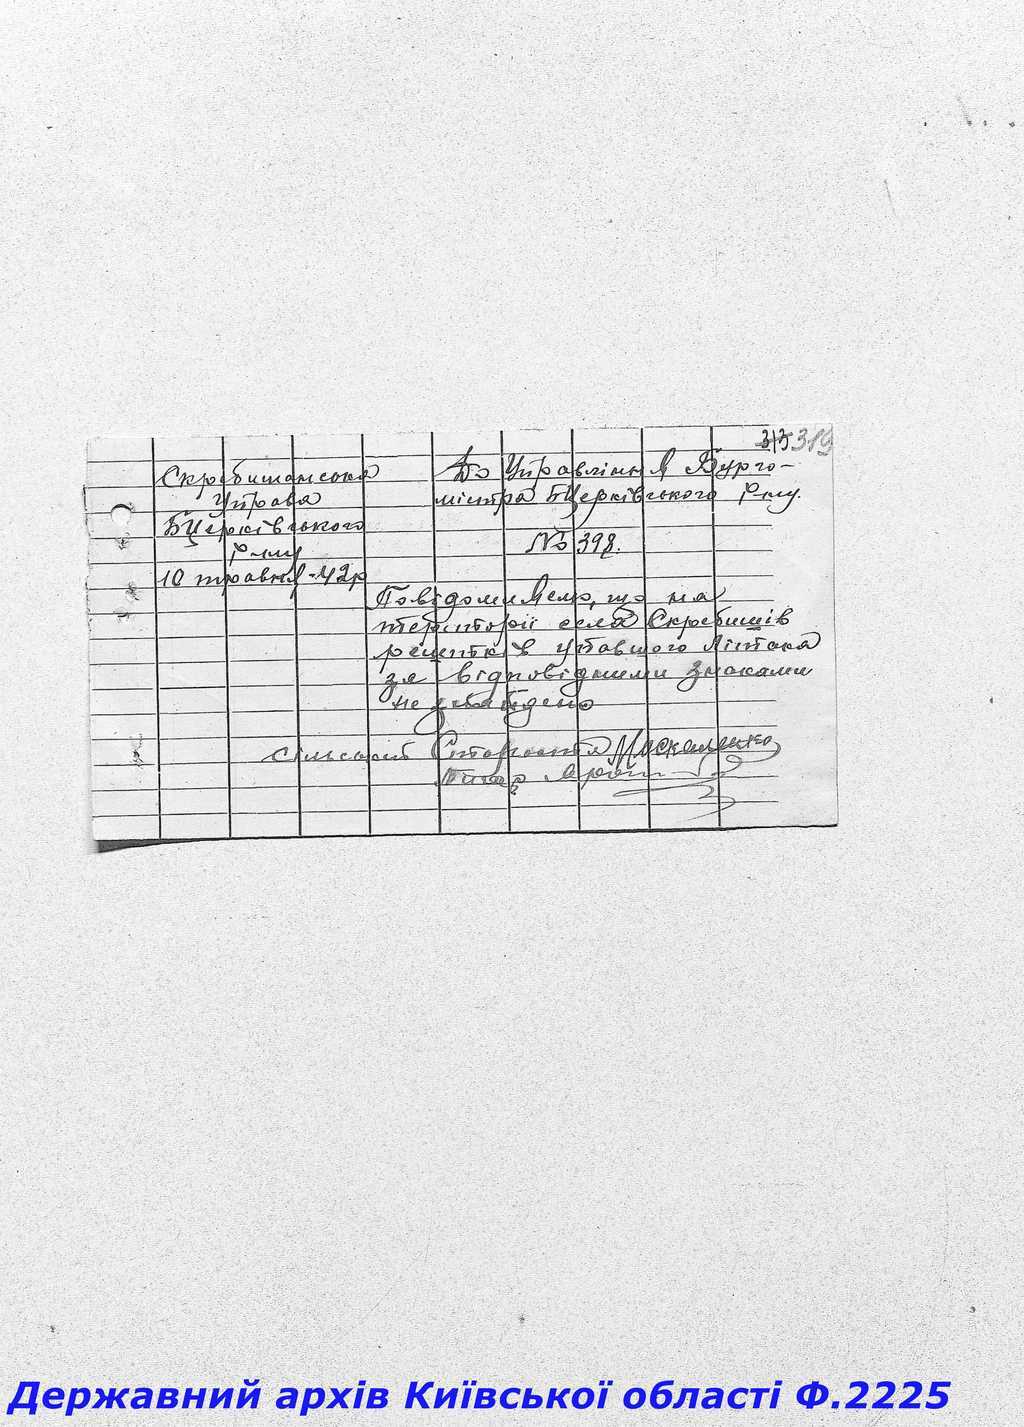 319
Скребишанська
Управа
БЦерківського
р-ну
10 травня-42р
До Управління Бурго-
містра БЦерківського р-ну.
№ 398.
Повідомляємо, що на
території села Скребишів
упавшого Літака
за відповідними знаками
не
сільский Староста Москаленко
Державний архів Київської області Ф.2225